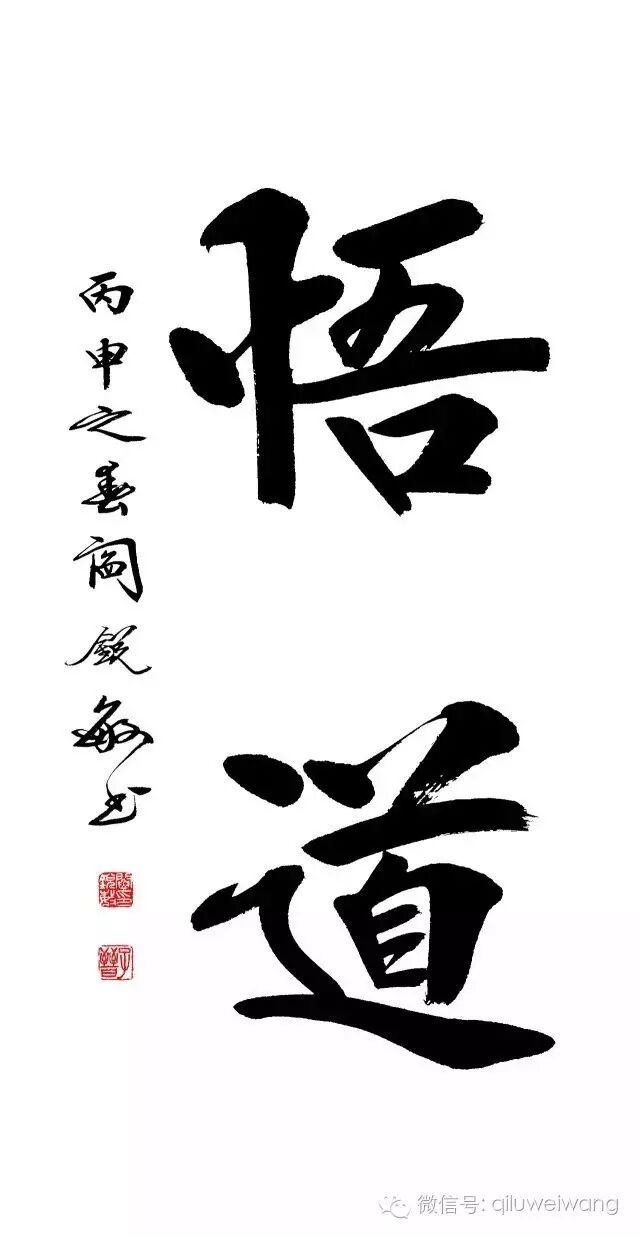 悟道
丙申之春阎锐敏书
微信号: qiluweiwang